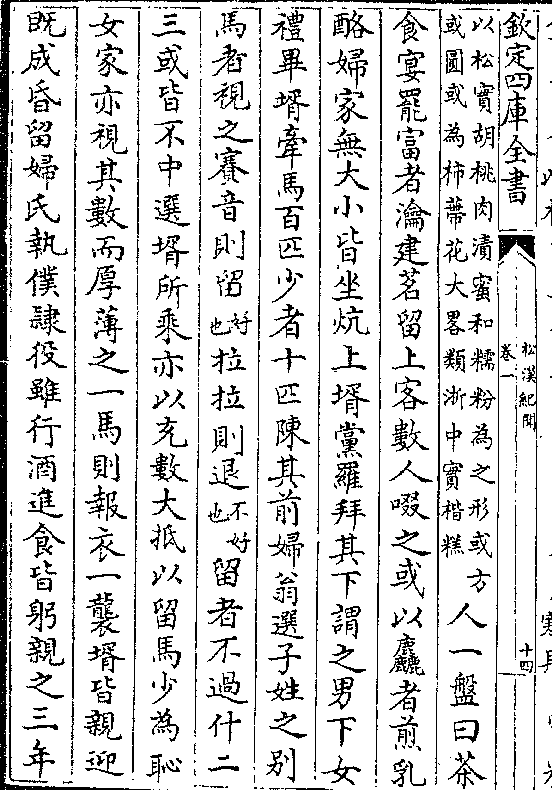 欽定四庫全書
松漠紀聞
卷一
十四
以松實胡桃肉漬蜜和糯粉為之形或方
或圓或為柿蔕花大畧類浙中實楷糕
人一盤曰茶
食宴罷富者瀹建茗留上客數人啜之或以麤者煎乳
酪婦家無大小皆坐炕上壻黨羅拜其下謂之男下女
禮畢壻牽馬百匹少者十匹陳其前婦翁選子姓之别
馬者視之賽音則留好也拉拉則退不好也留者不過什二
三或皆不中選壻所乘亦以充數大抵以留馬少為恥
女家亦視其數而厚薄之一馬則報衣一襲壻皆親迎
既成昏留婦氏執僕隸役雖行酒進食皆躬親之三年